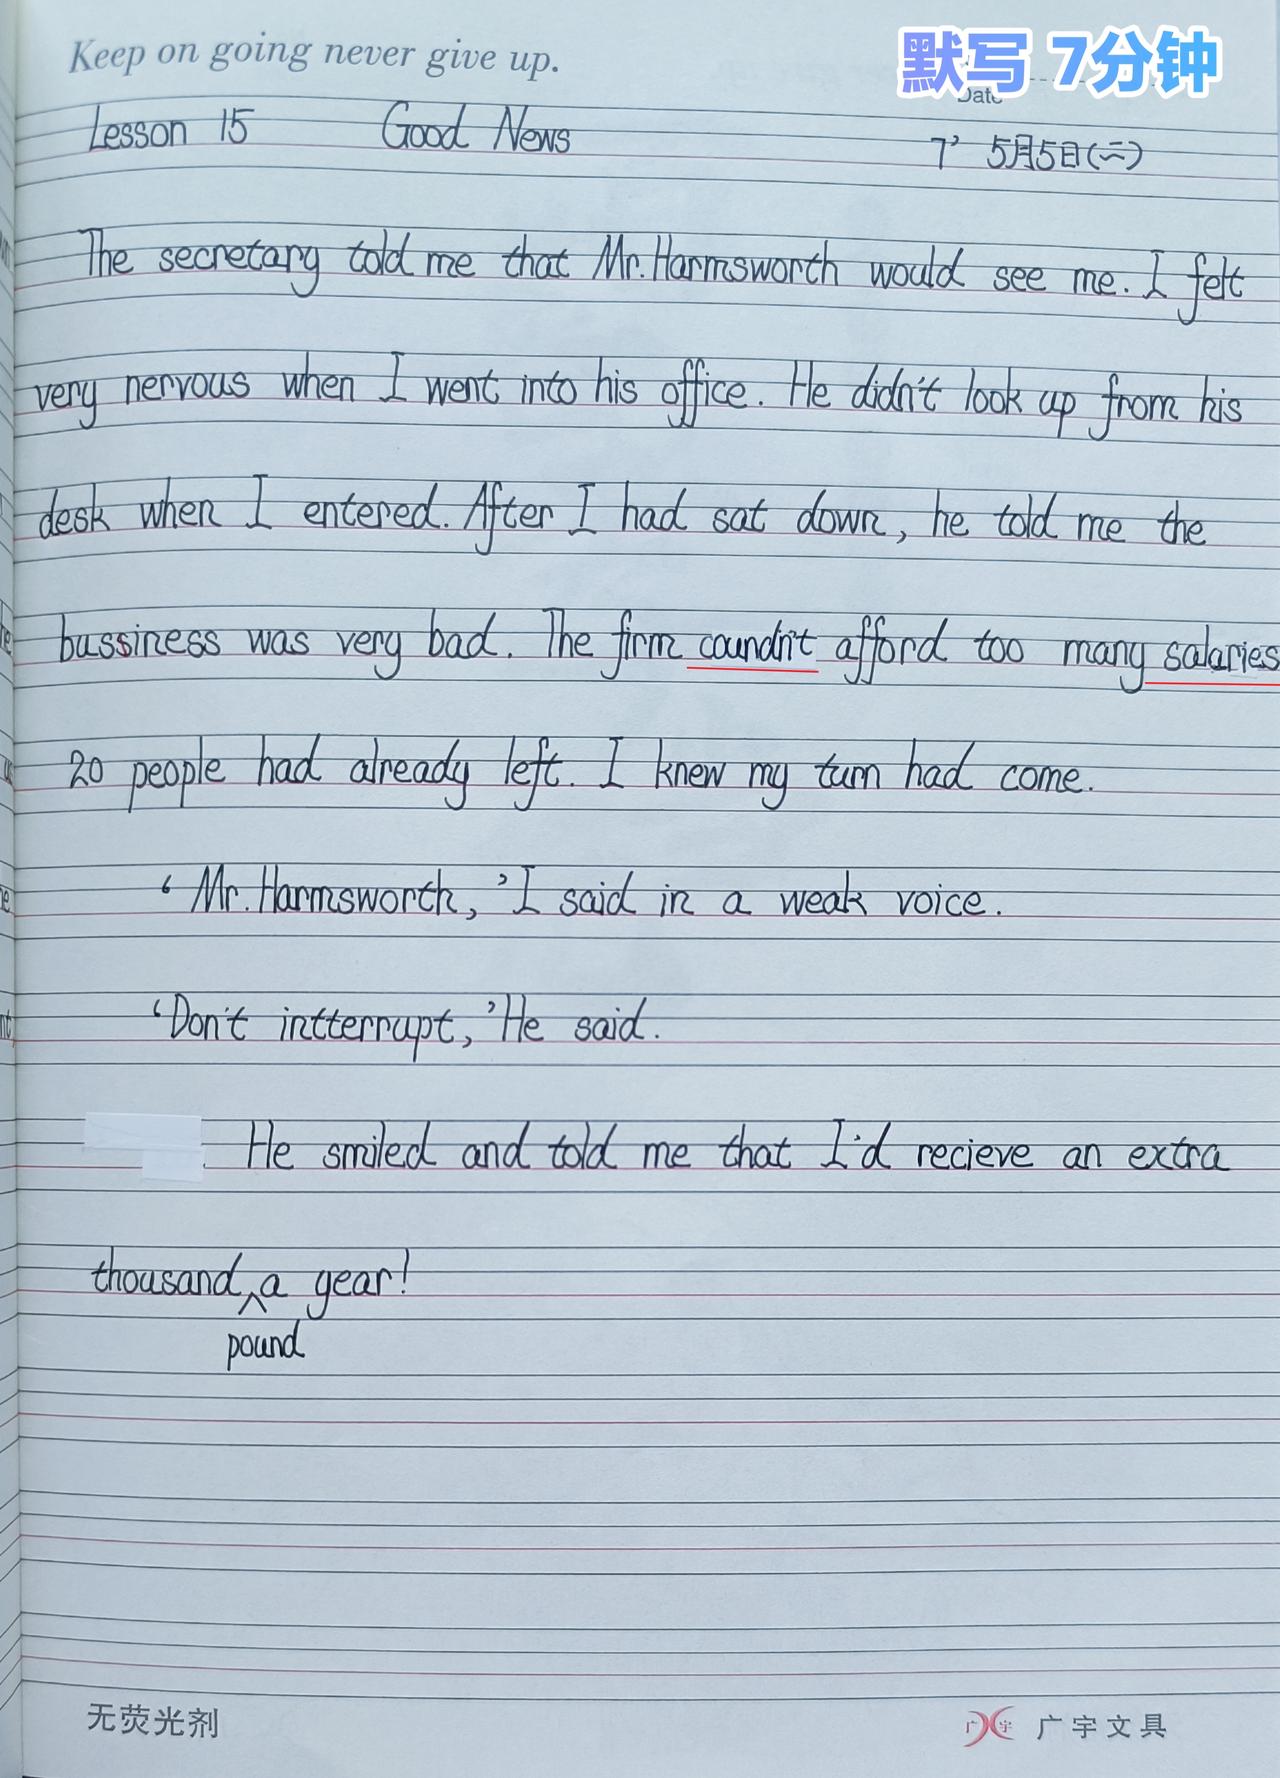 Keep on going never give up.
默写 7分钟
Date
Lesson 15 Good News
7' 5月5日(二)
The secretary told me that Mr. Harmsworth would see me. I felt
very nervous when I went into his office. He didn't look up from his
desk when I entered. After I had sat down, he told me the
bussiness was very bad. The firm coundn't afford too many salaries
20 people had already left. I knew my turn had come.
‘Mr. Harmsworth,’ I said in a weak voice.
‘Don't intterrupt,’ He said.
He smiled and told me that I'd recieve an extra
thousand a year!
pound
无荧光剂
广宇 广宇文具